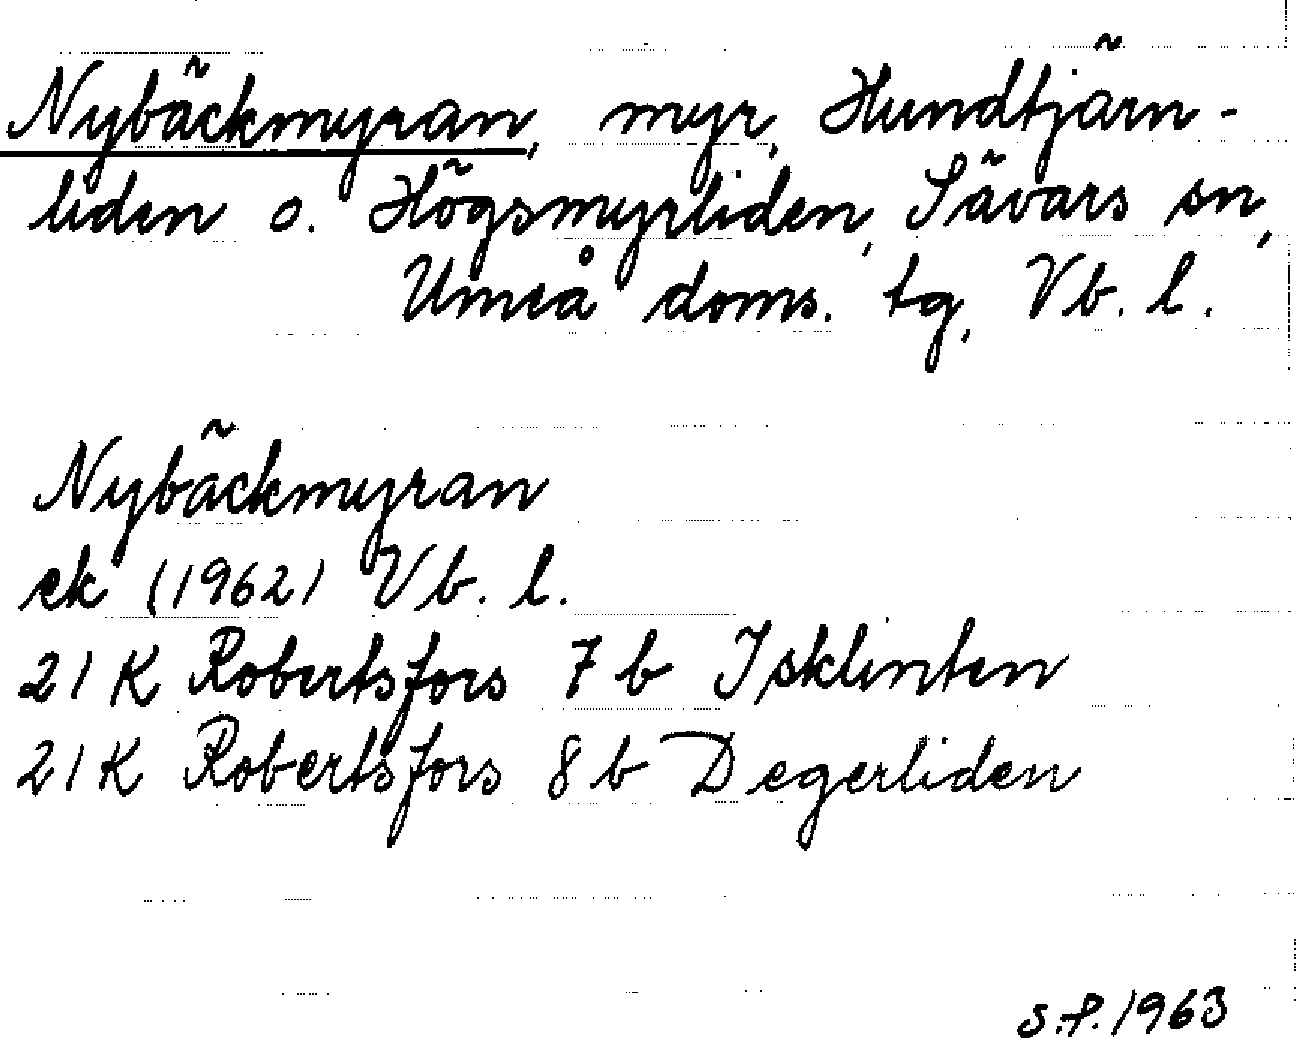 Nybäckmyran, myr, Hundtjärn-
liden o. Högsmyrliden, Sävars sn,
Umeå doms. tg, Vb. l.
Nybäckmyran
ek (1962) Vb. l.
21 K Robertsfors 7 b Isklinten
21 K Robertsfors 8 b Degerliden
S.P. 1963